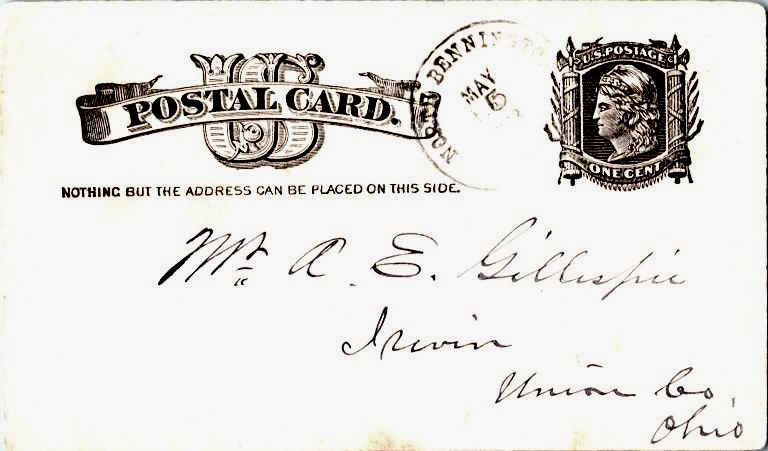 US
POSTAL CARD.
NOTHING BUT THE ADDRESS CAN BE PLACED ON THIS SIDE.
NORTH BENNINGTO
MAY
5
U.S. POSTAGE
ONE CENT
Mr. A. E. Gillespie
Irwin
Union Co.
Ohio